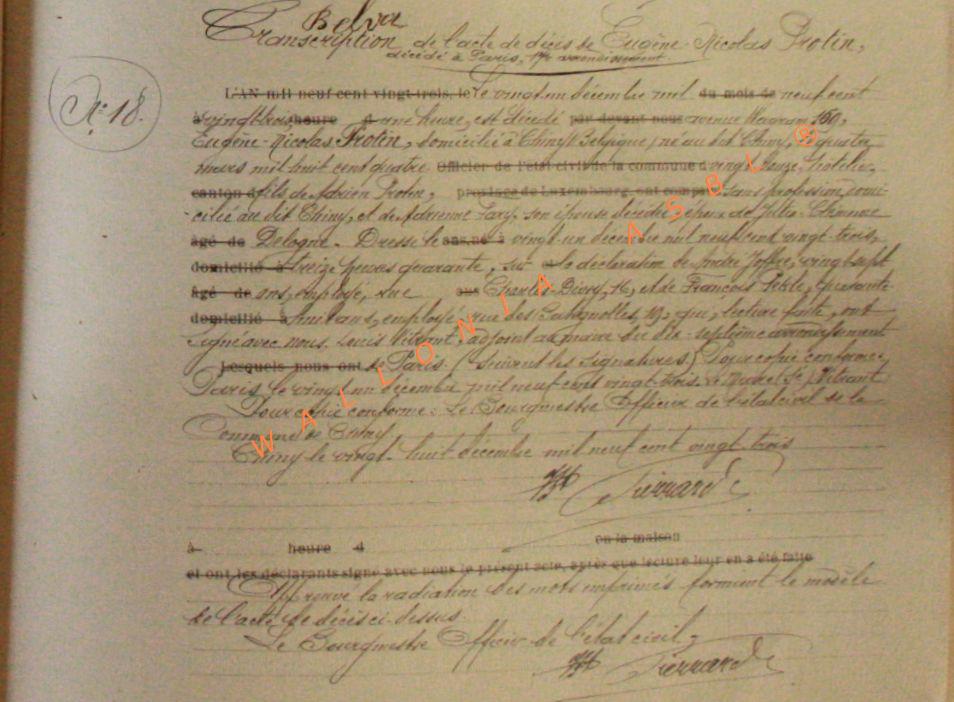 Belva
Transcription de l'acte de décès de Eugène-Nicolas Protin,
décédé à Paris, 17e arrondissement.
N° 18.
L'AN mil neuf cent vingt-trois, le Le vingt un décembre mil du mois de neuf cent
à vingt trois heure d une heure, est décédé par devant nous avenue Wagram 160,
Eugène-Nicolas Protin, domicilié à Chiny (Belgique) né au dit Chiny, le quatre
mars mil huit cent quatre Officier de l'état civil de la commune d vingt onze, hôtelier,
canton d fils de Adrien Protin, province de Luxembourg, ont comparu sans profession, domi-
cilié au dit Chiny, et de Adrienne son épouse décédée, époux de Julia
âgé de Delogne. Dressé le vingt un décembre mil neuf cent vingt trois,
domicilié à treize heures quarante, sur la déclaration de André Joffre, vingt sept
âgé de ans, employé, rue ans Charles 16, et de François quarante
domicilié à huit ans, employé, rue des 19, qui, lecture faite, ont
signé avec nous, Louis Vibrant, adjoint au maire du dix-septième arrondissement
Lesquels nous ont de Paris. (Suivent les signatures) Pour copie conforme,
Paris, le vingt un décembre mil neuf cent vingt-trois. Le Maire (Sé) Vibrant
Pour copie conforme: Le Bourgmestre Officier de l'état civil de la
Commune de Chiny
Chiny le vingt-huit décembre mil neuf cent vingt trois
Pierrard
à heure d en la maison
et ont les déclarants signé avec nous le présent acte, après que lecture leur en a été faite
Approuvé la radiation des mots imprimés formant le modèle
de l'acte de décès ci-dessus.
Le Bourgmestre Officier de l'état civil,
Pierrard
WALLONIA ASBL ®